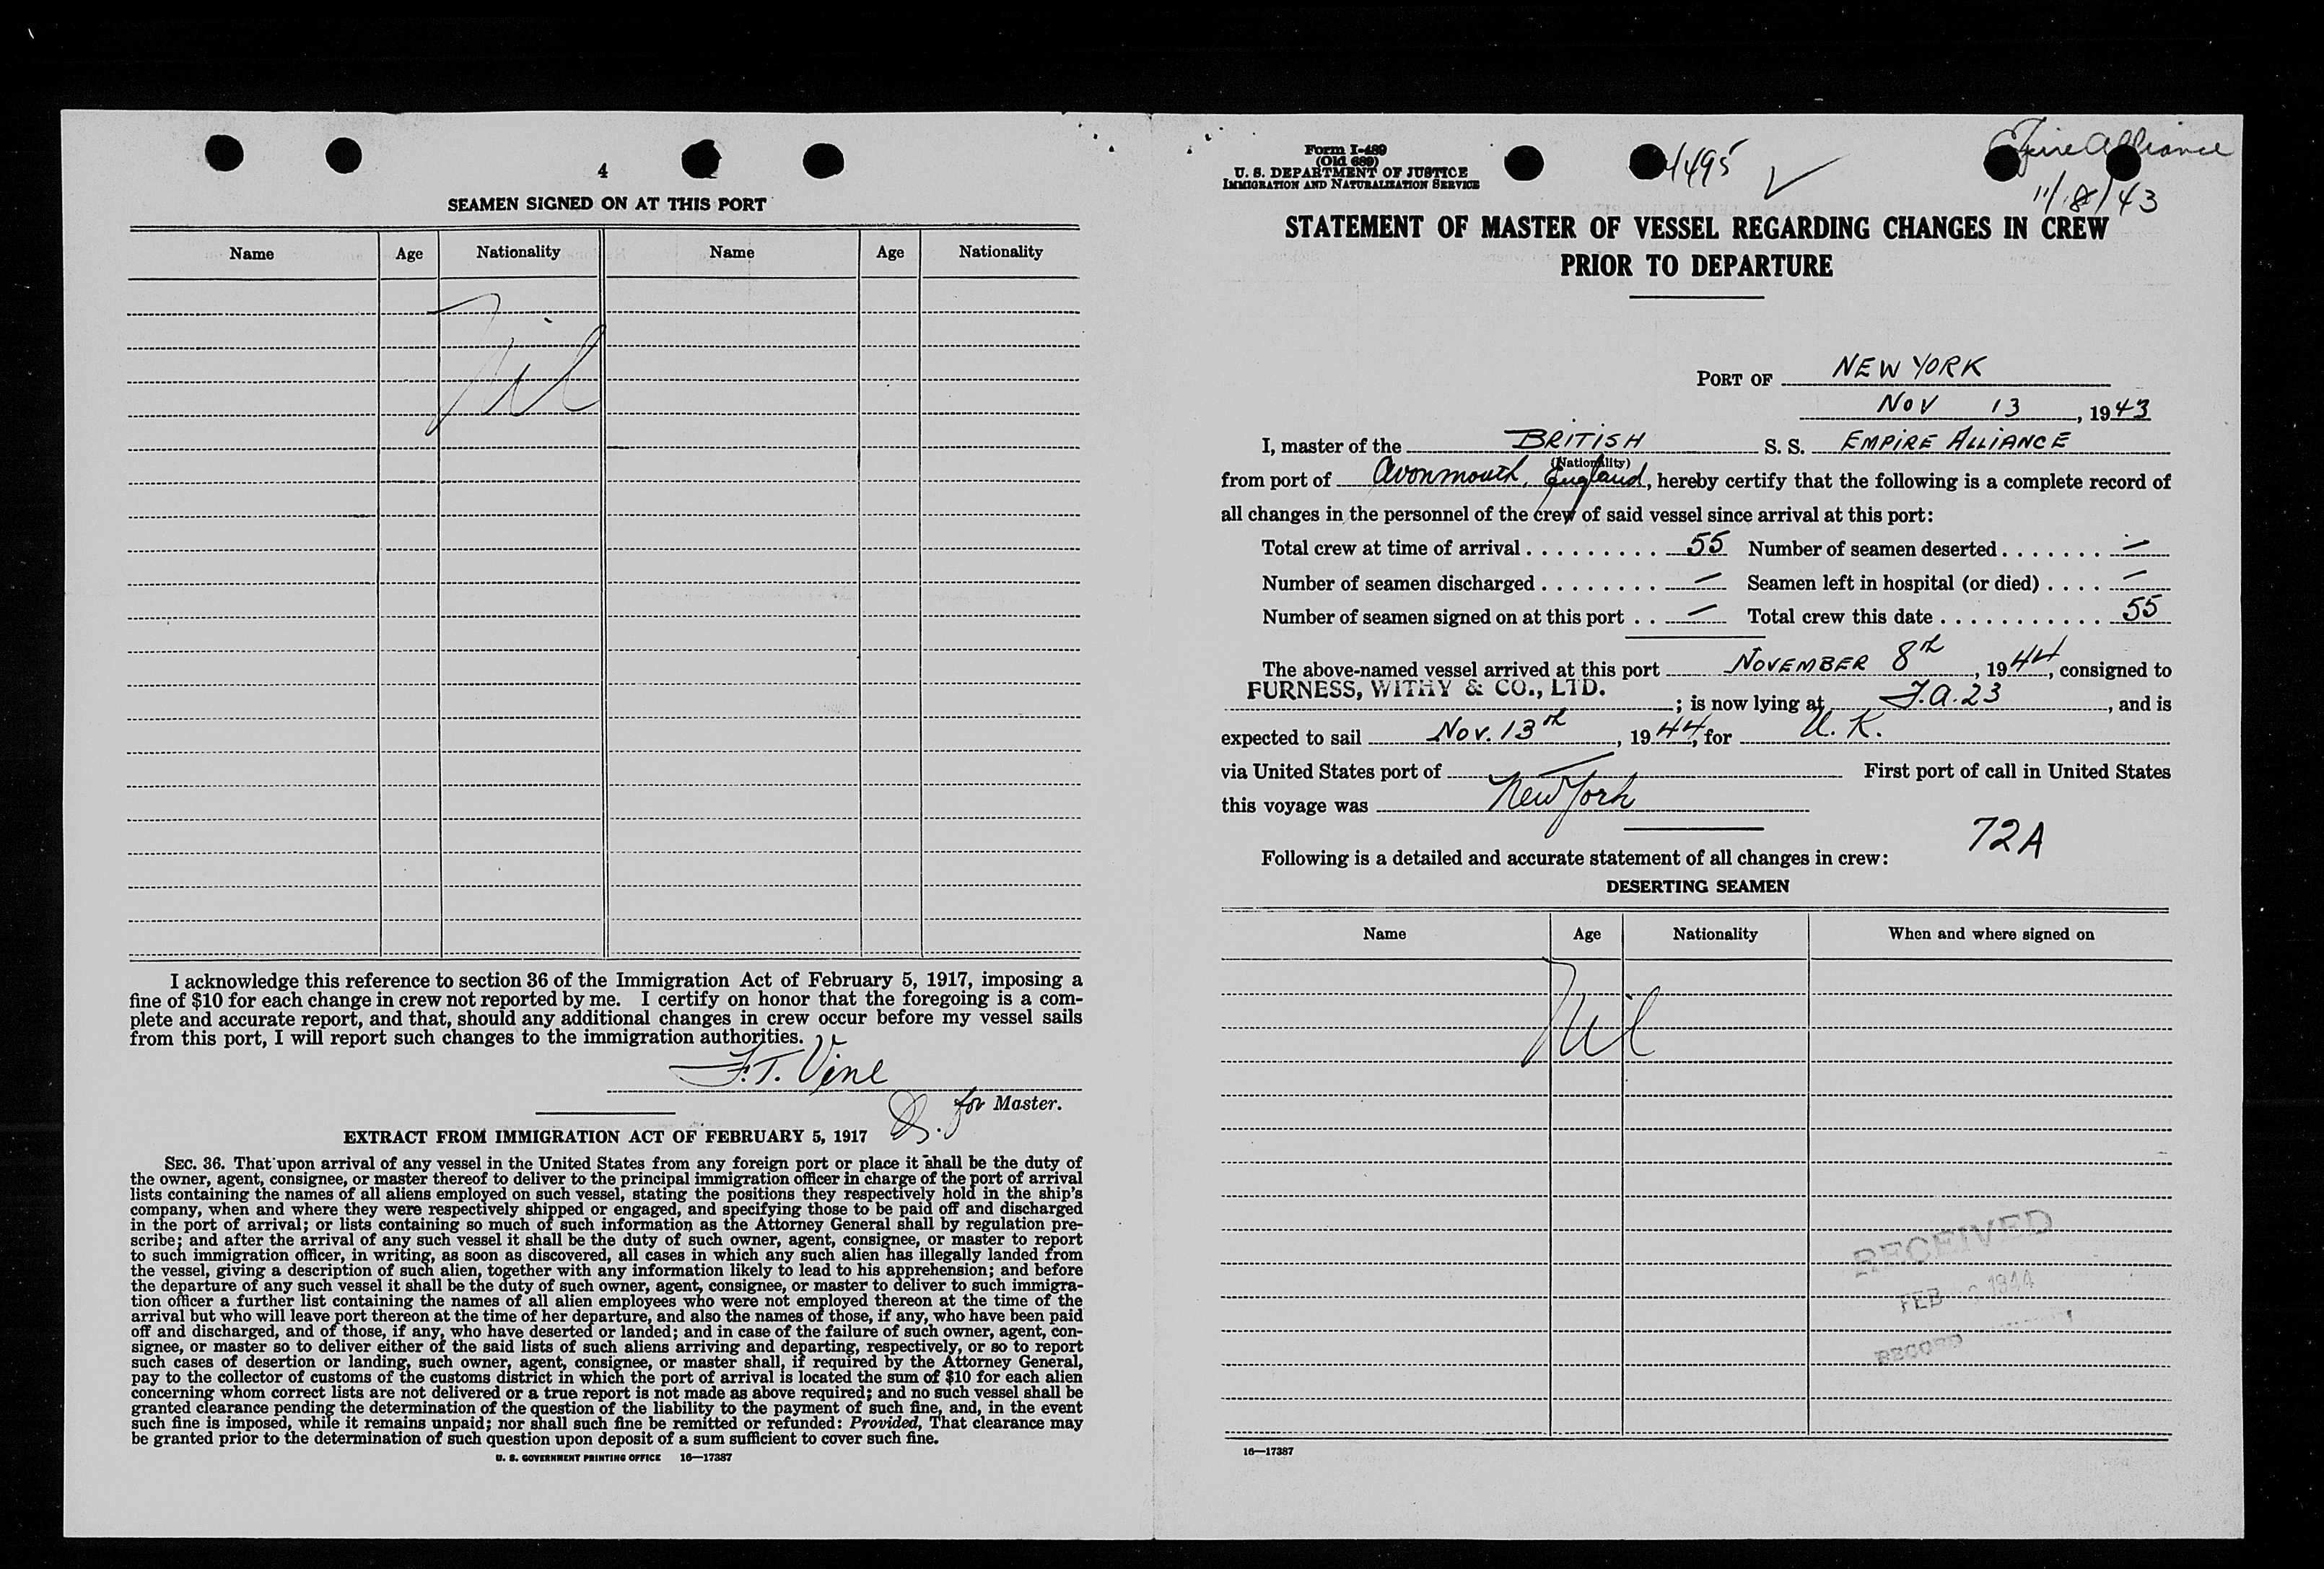 4
SEAMEN SIGNED ON AT THIS PORT
Name Age Nationality Name Age Nationality
Nil
I acknowledge this reference to section 36 of the Immigration Act of February 5, 1917, imposing a
fine of $10 for each change in crew not reported by me. I certify on honor that the foregoing is a com-
plete and accurate report, and that, should any additional changes in crew occur before my vessel sails
from this port, I will report such changes to the immigration authorities.
F.T. Vine
for Master.
EXTRACT FROM IMMIGRATION ACT OF FEBRUARY 5, 1917
SEC. 36. That upon arrival of any vessel in the United States from any foreign port or place it shall be the duty of
the owner, agent, consignee, or master thereof to deliver to the principal immigration officer in charge of the port of arrival
lists containing the names of all aliens employed on such vessel, stating the positions they respectively hold in the ship's
company, when and where they were respectively shipped or engaged, and specifying those to be paid off and discharged
in the port of arrival; or lists containing so much of such information as the Attorney General shall by regulation pre-
scribe; and after the arrival of any such vessel it shall be the duty of such owner, agent, consignee, or master to report
to such immigration officer, in writing, as soon as discovered, all cases in which any such alien has illegally landed from
the vessel, giving a description of such alien, together with any information likely to lead to his apprehension; and before
the departure of any such vessel it shall be the duty of such owner, agent, consignee, or master to deliver to such immigra-
tion officer a further list containing the names of all alien employees who were not employed thereon at the time of the
arrival but who will leave port thereon at the time of her departure, and also the names of those, if any, who have been paid
off and discharged, and of those, if any, who have deserted or landed; and in case of the failure of such owner, agent, con-
signee, or master so to deliver either of the said lists of such aliens arriving and departing, respectively, or so to report
such cases of desertion or landing, such owner, agent, consignee, or master shall, if required by the Attorney General,
pay to the collector of customs of the customs district in which the port of arrival is located the sum of $10 for each alien
concerning whom correct lists are not delivered or a true report is not made as above required; and no such vessel shall be
granted clearance pending the determination of the question of the liability to the payment of such fine, and, in the event
such fine is imposed, while it remains unpaid; nor shall such fine be remitted or refunded: Provided, That clearance may
be granted prior to the determination of such question upon deposit of a sum sufficient to cover such fine.
U. S. GOVERNMENT PRINTING OFFICE 16—17387
Form I-489
(Old 689)
U. S. DEPARTMENT OF JUSTICE
IMMIGRATION AND NATURALIZATION SERVICE
1495
Alliance
11/8/43
STATEMENT OF MASTER OF VESSEL REGARDING CHANGES IN CREW
PRIOR TO DEPARTURE
PORT OF NEW YORK
NOV 13, 1943
I, master of the BRITISH S. S. EMPIRE ALLIANCE
(Nationality)
from port of Avonmouth, England, hereby certify that the following is a complete record of
all changes in the personnel of the crew of said vessel since arrival at this port:
Total crew at time of arrival . . . . . . . . . 55 Number of seamen deserted . . . . . . . —
Number of seamen discharged . . . . . . . . — Seamen left in hospital (or died) . . . . —
Number of seamen signed on at this port . . — Total crew this date . . . . . . . . . . . . 55
The above-named vessel arrived at this port NOVEMBER 8th, 1944, consigned to
FURNESS, WITHY & CO., LTD.; is now lying at F.A.23, and is
expected to sail Nov. 13th, 1944, for U. K.
via United States port of — First port of call in United States
this voyage was New York
72A
Following is a detailed and accurate statement of all changes in crew:
DESERTING SEAMEN
Name Age Nationality When and where signed on
Nil
RECEIVED
FEB 1944
RECORD
16—17387